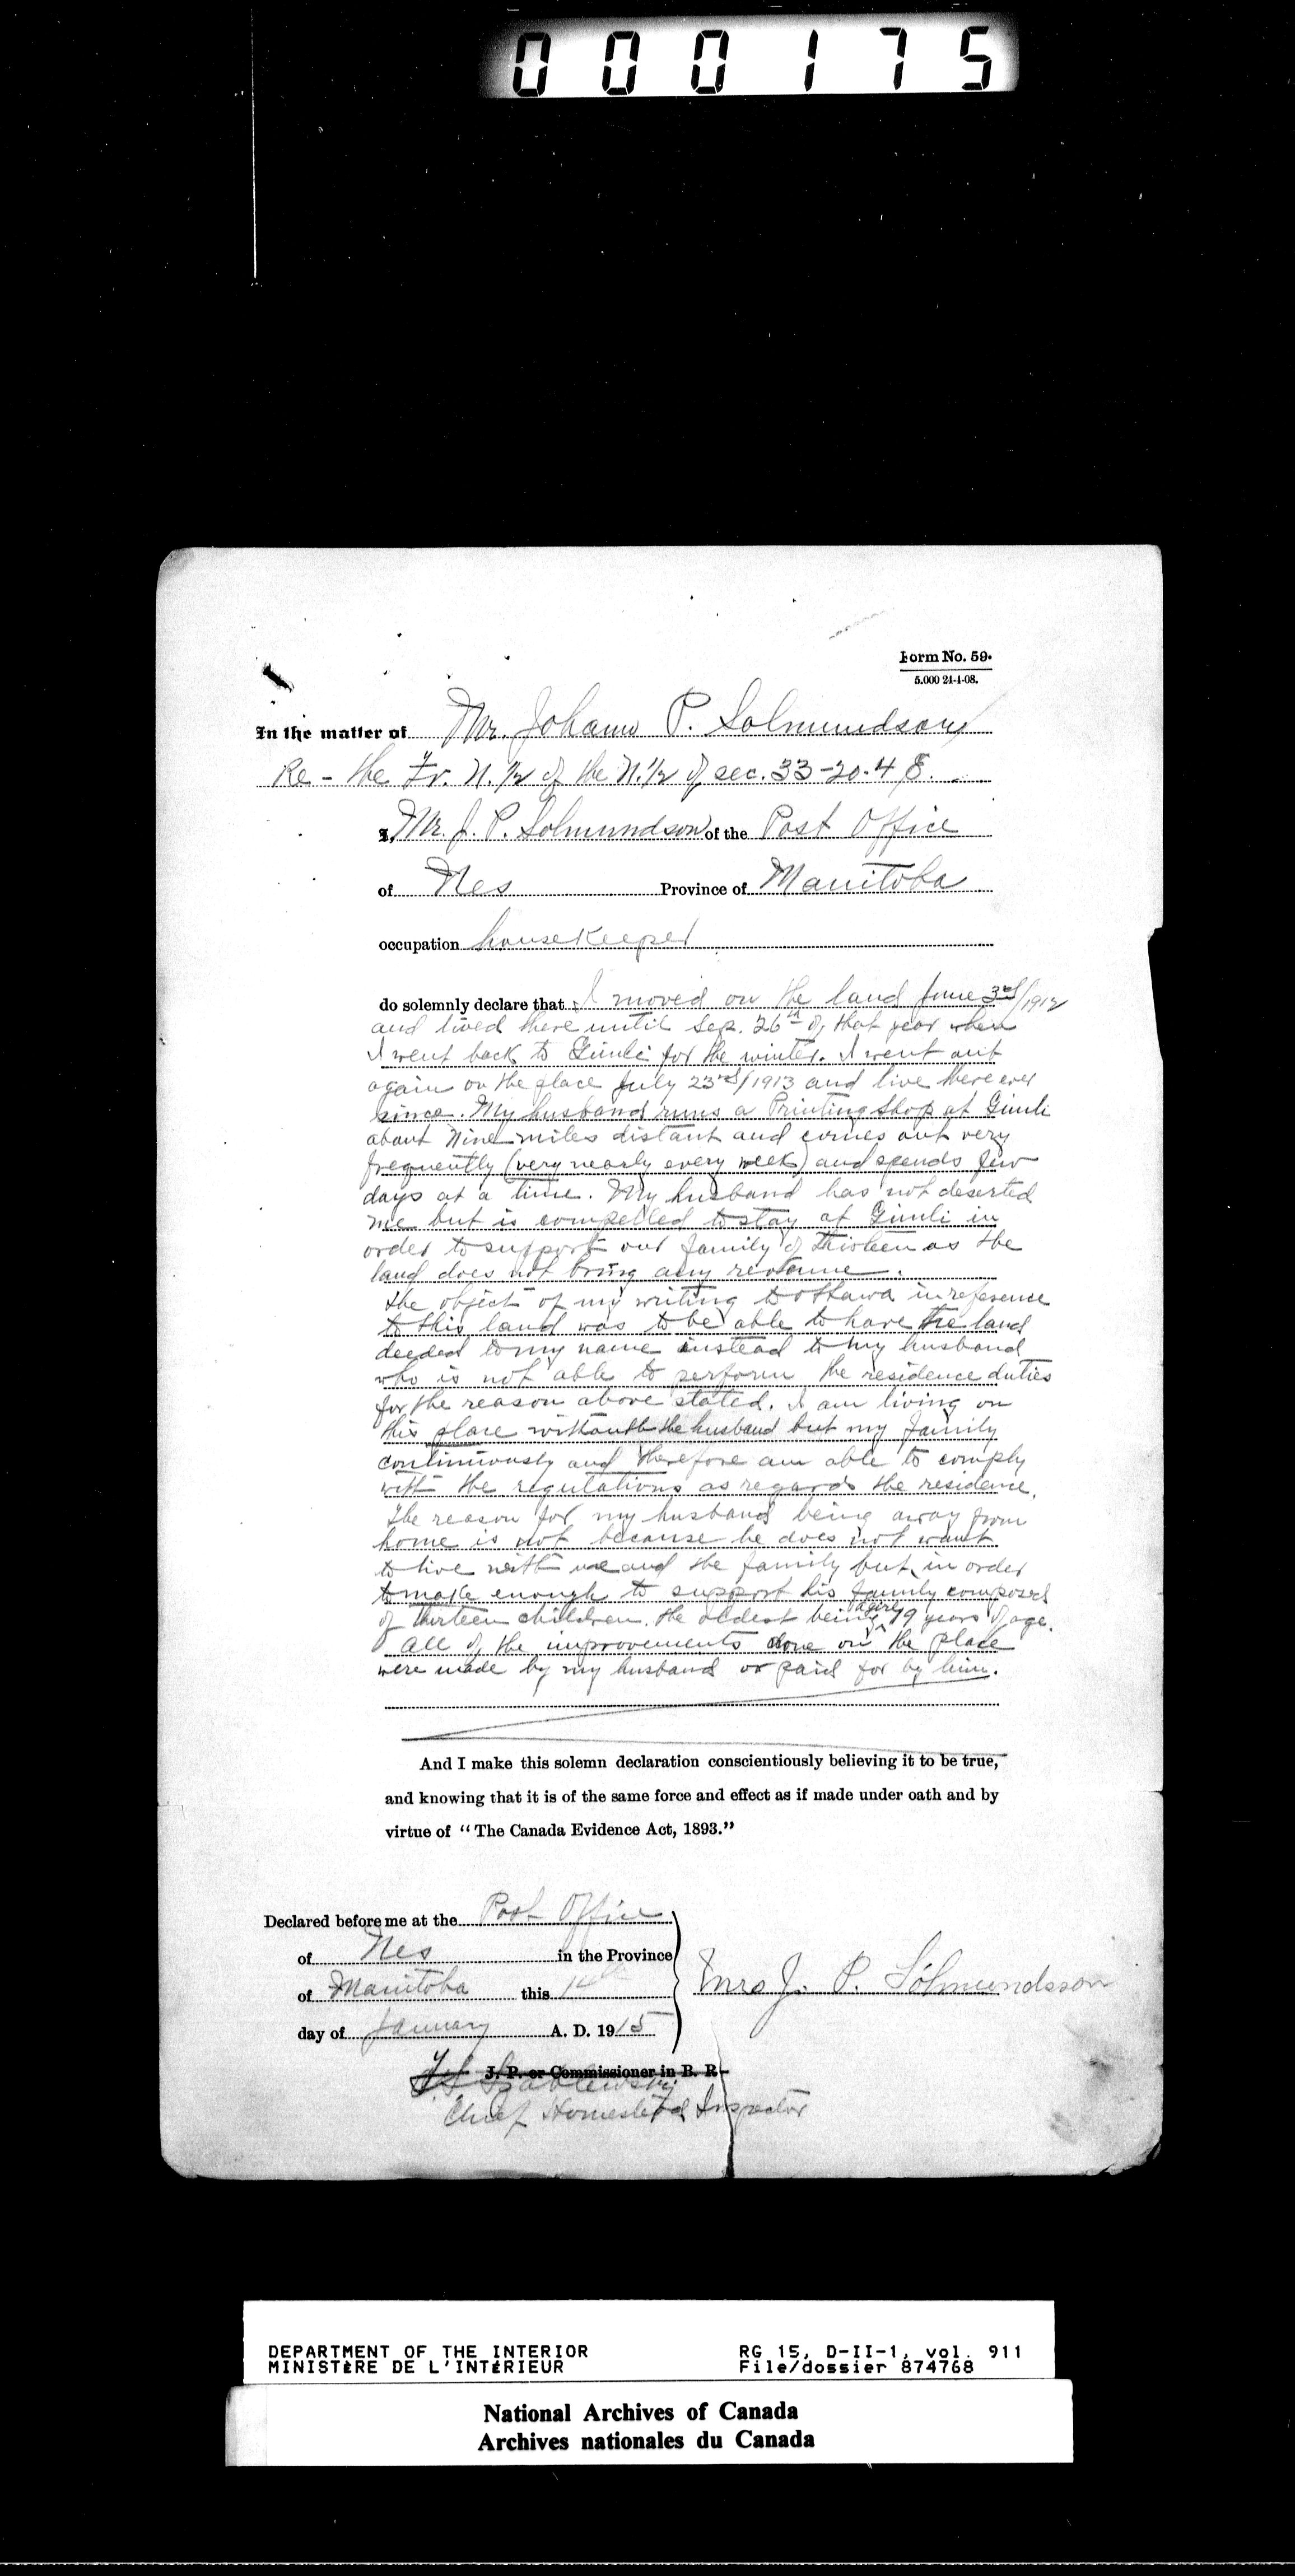 000175
Form No. 59.
5.000 21-1-08.
In the matter of Mr. Johann P. Solmundson
Re - the Fr. N. 1/2 of the N. 1/2 of sec. 33-20-4 E.
I, Mr. J. P. Solmundson of the Post Office
of Nes Province of Manitoba
occupation housekeeper
do solemnly declare that I moved on the land June 3rd/1912
and lived there until Sep. 26th of that year when
I went back to Gimli for the winter. I went out
again on the place July 23rd/1913 and live there ever
since. My husband runs a Printing Shop at Gimli
about Nine miles distant and comes out very
frequently (very nearly every week) and spends few
days at a time. My husband has not deserted
me but is compelled to stay at Gimli in
order to support our family of thirteen as the
land does not bring any revenue.
The object of my writing to Ottawa in reference
to this land was to be able to have the land
deeded to my name instead to my husband
who is not able to perform the residence duties
for the reason above stated. I am living on
this place without the husband but my family
continuously and therefore am able to comply
with the regulations as regards the residence.
The reason for my husband being away from
home is not because he does not want
to live with me and the family but in order
to make enough to support his family composed
of thirteen children. the oldest being 19 years of age.
All of the improvements done on the place
were made by my husband or paid for by him.
And I make this solemn declaration conscientiously believing it to be true,
and knowing that it is of the same force and effect as if made under oath and by
virtue of "The Canada Evidence Act, 1893."
Declared before me at the Post Office
of Nes in the Province
of Manitoba this 14th
day of January A. D. 1915
Mrs J. P. Sólmundsson
J. P. or Commissioner in B. R.
Chief Homestead Inspector
DEPARTMENT OF THE INTERIOR
MINISTÈRE DE L'INTÉRIEUR
RG 15, D-II-1, vol. 911
File/dossier 874768
National Archives of Canada
Archives nationales du Canada